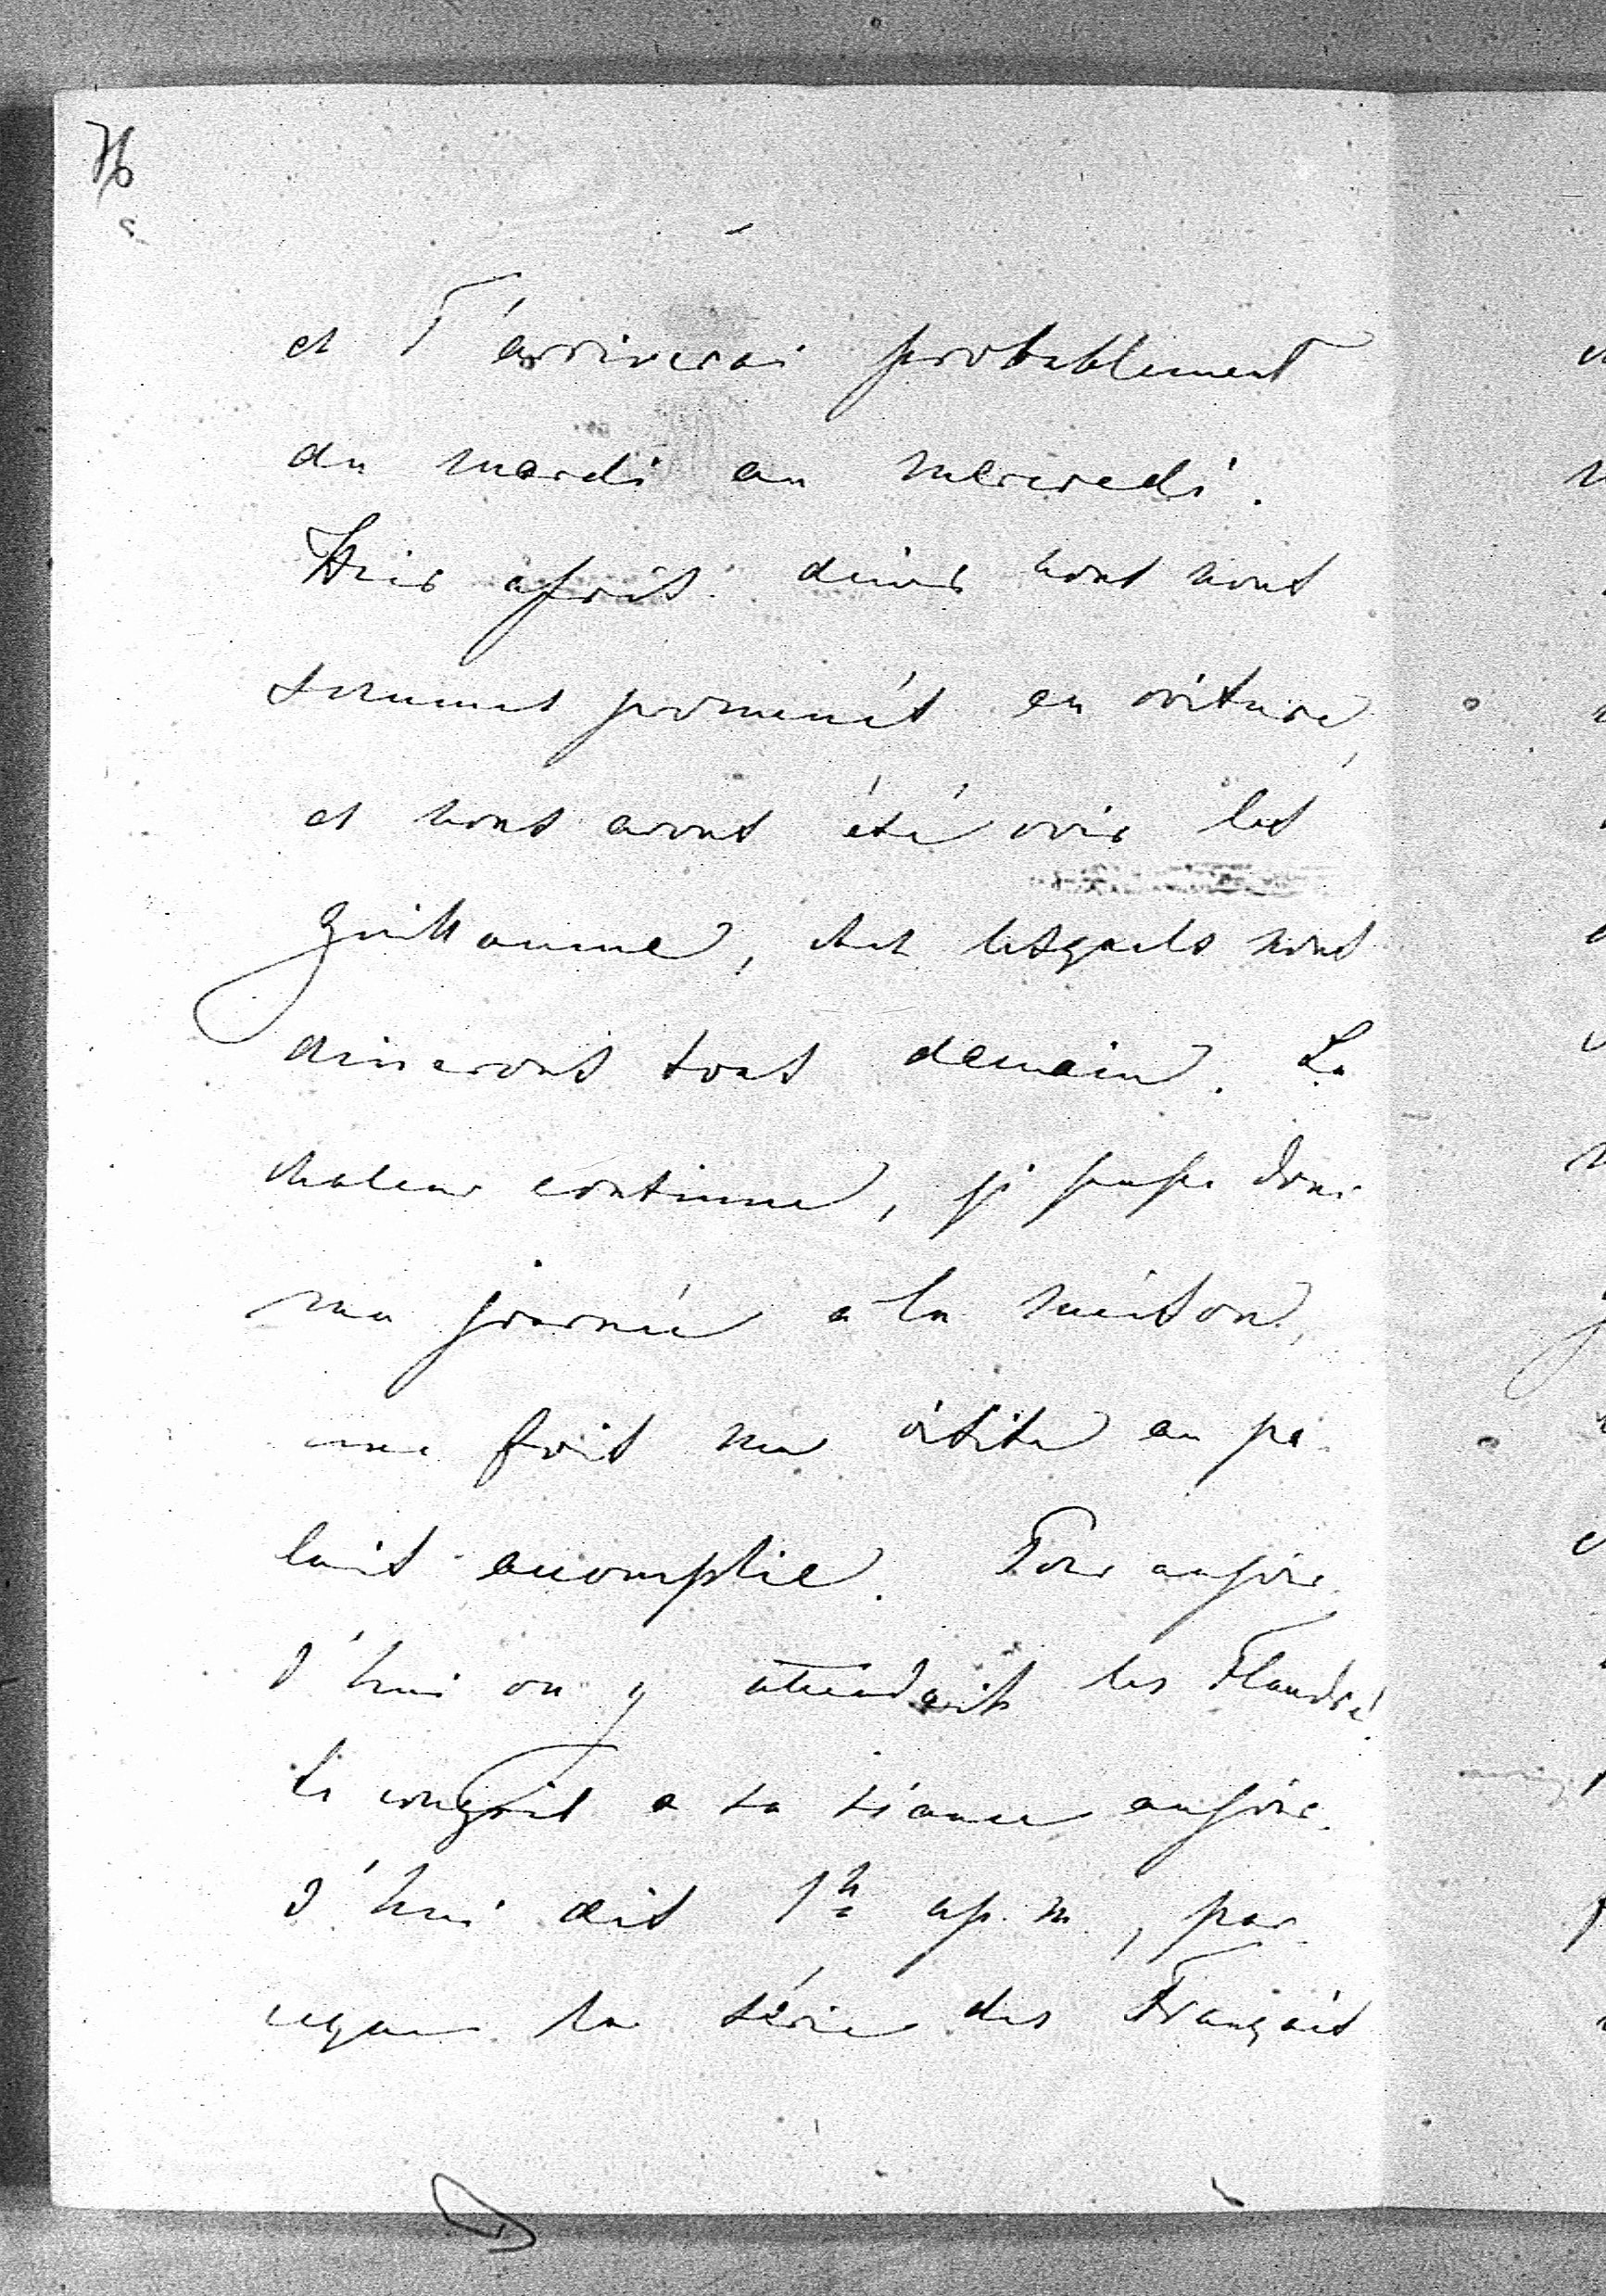 76
et T'arriverai probablement
du mardi au mercredi.
Hier après diner nous nous
sommes promenés en voiture,
et nous avons été voir les
Guillaume, chez lesquels nous
dinerons tous demain. La
chaleur continue, je passe donc
ma journée a la maison,
une fois ma visite au pa-
lais accomplie. Pour aujour-
d'hui on y attendait les Flandre.
Le congrès a sa séance aujour-
d'hui dès 1h ap. m., par-
ceque la série des Français